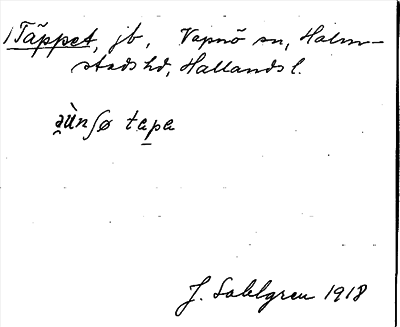 1 Täppet, jb, Vapnö sn, Halm-
stads hd, Hallands l.
tapa
J. Sahlgren 1918